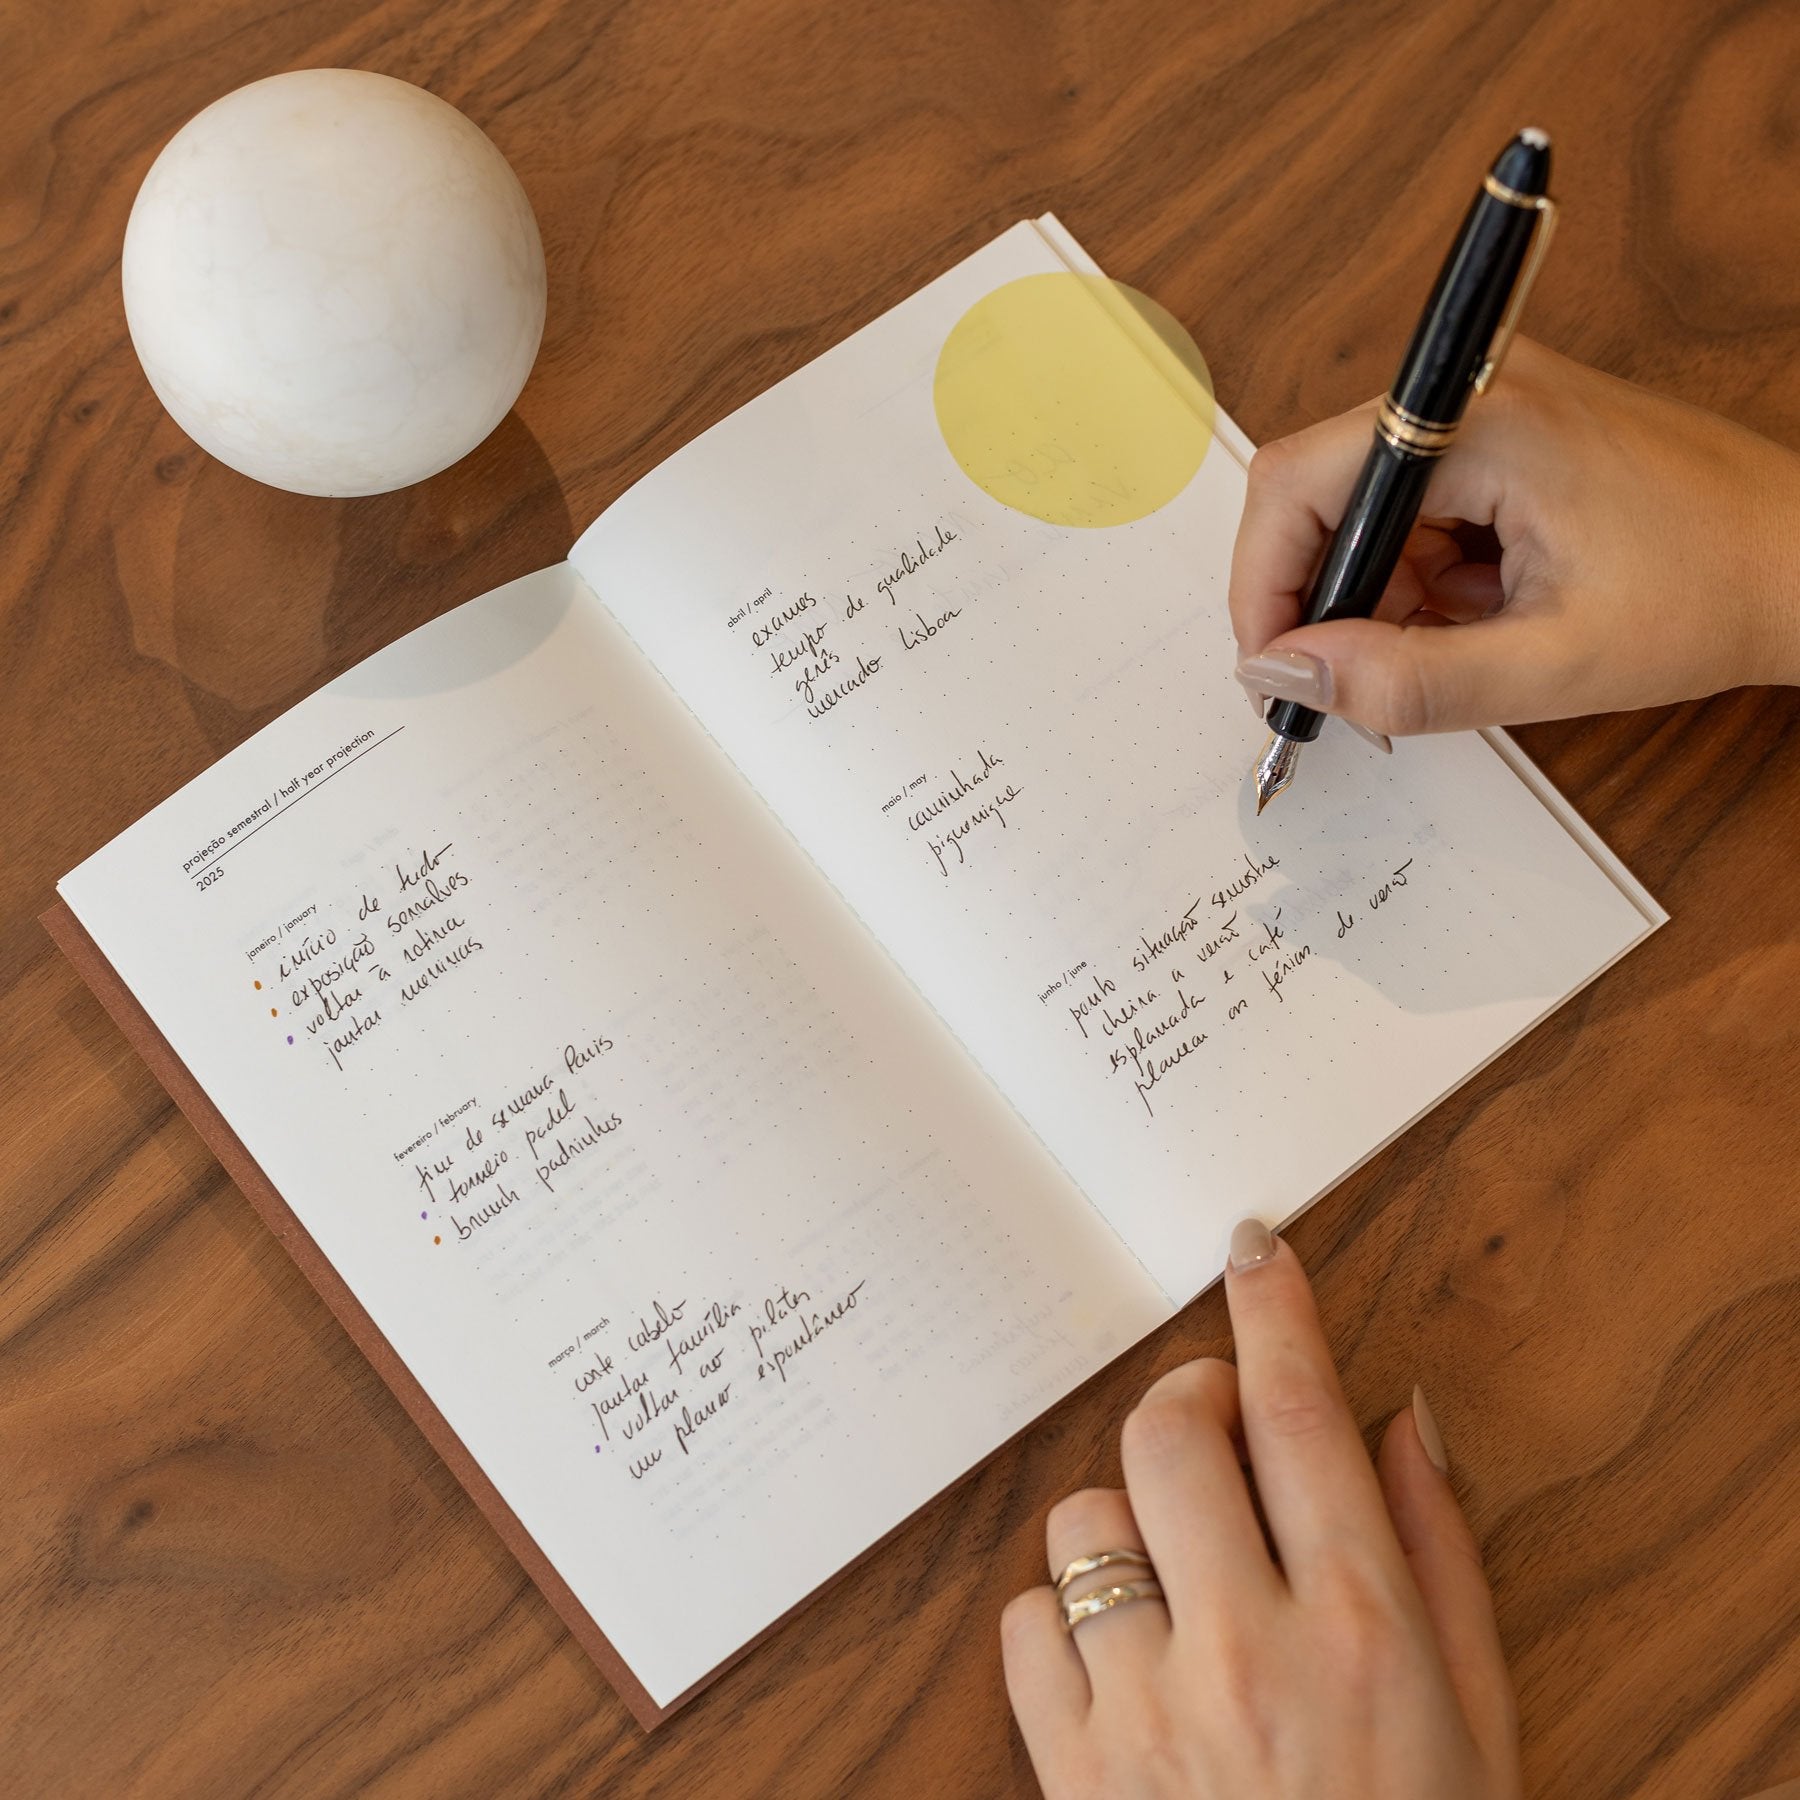 projeção semestral / half year projection
2025
janeiro / january
início de tudo
exposição serralves
voltar à rotina
jantar meninas
fevereiro / february
fim de semana Paris
torneio padel
brunch padrinhos
março / march
corte cabelo
jantar família
voltar ao pilates
um plano espontâneo
abril / april
exames
tempo de qualidade
gerês
mercado Lisboa
maio / may
caminhada
piquenique
junho / june
ponto situação semestre
cheira a verão
esplanada e café
planear as férias de verão